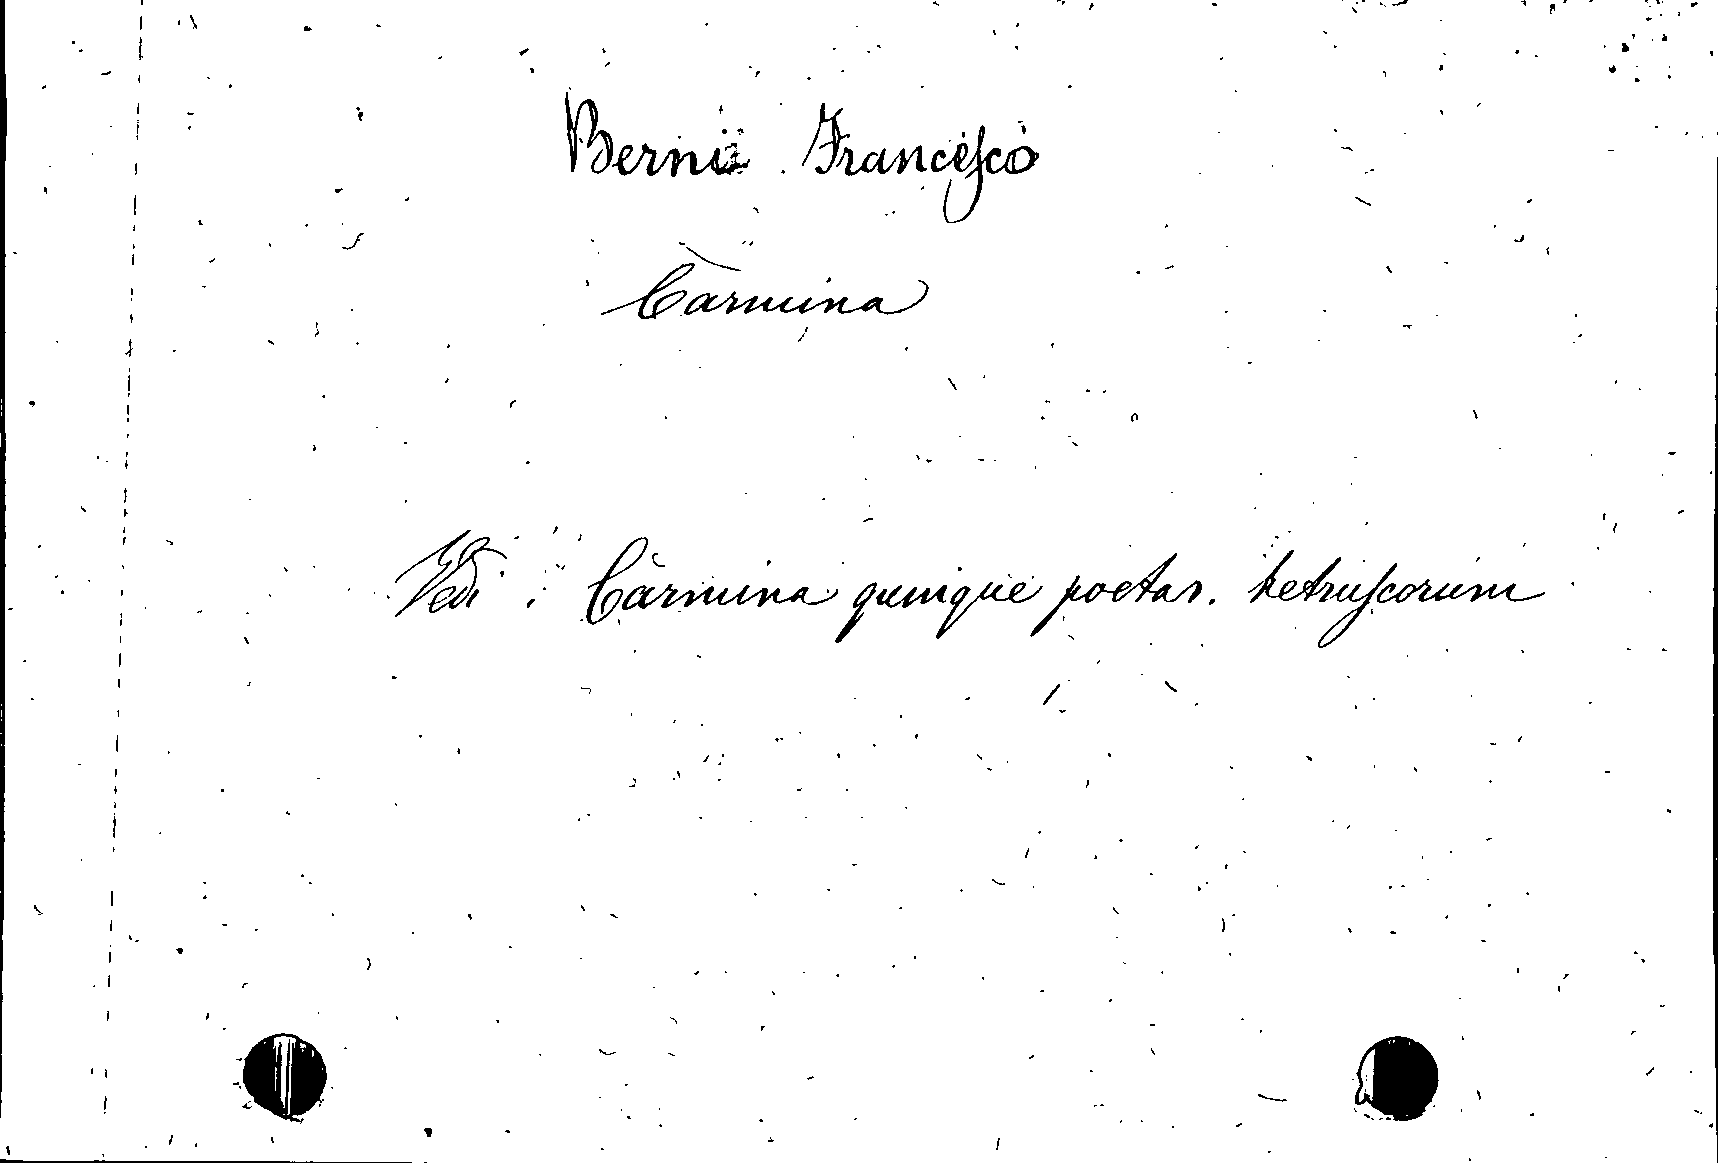 Berni Francesco
Carmina
Vedi : Carmina quinque poetar. hetruscorum